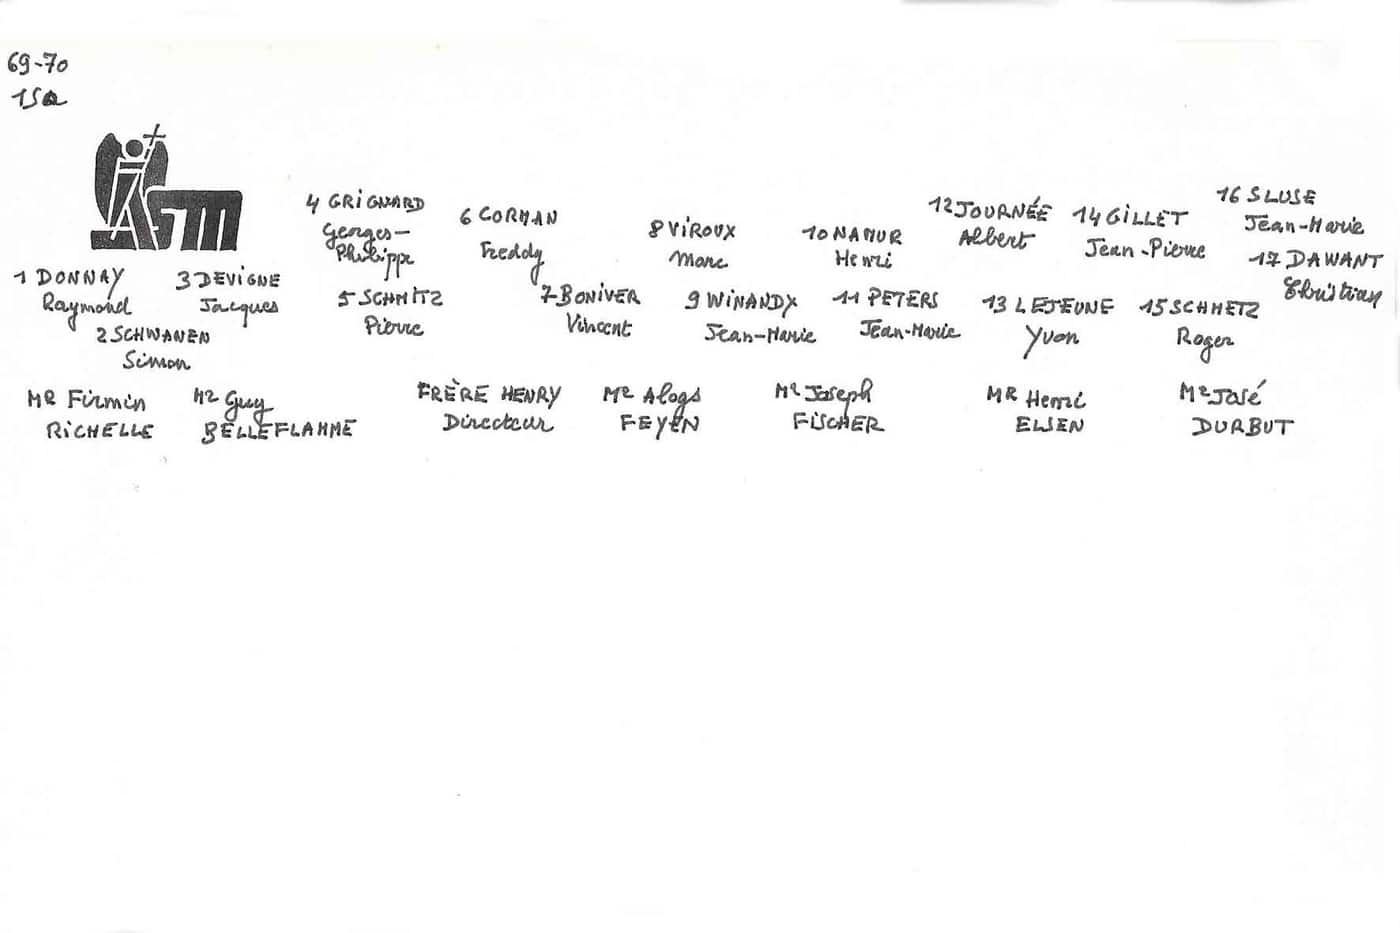 69-70
1Sa
ASM
4 GRIGNARD
Georges-
Philippe
6 CORMAN
Freddy
8 VIROUX
Marc
10 NAMUR
Henri
12 JOURNÉE
Albert
14 GILLET
Jean-Pierre
16 SLUSE
Jean-Marie
17 DAWANT
Christian
1 DONNAY
Raymond
2 SCHWANEN
Simon
3 DEVIGNE
Jacques
5 SCHMITZ
Pierre
7 BONIVER
Vincent
9 WINANDY
Jean-Marie
11 PETERS
Jean-Marie
13 LEJEUNE
Yvon
15 SCHMETZ
Roger
MR Firmin
RICHELLE
MR Guy
BELLEFLAMME
FRÈRE HENRY
Directeur
MR Aloys
FEYEN
MR Joseph
FISCHER
MR Henri
ELSEN
MR José
DURBUT